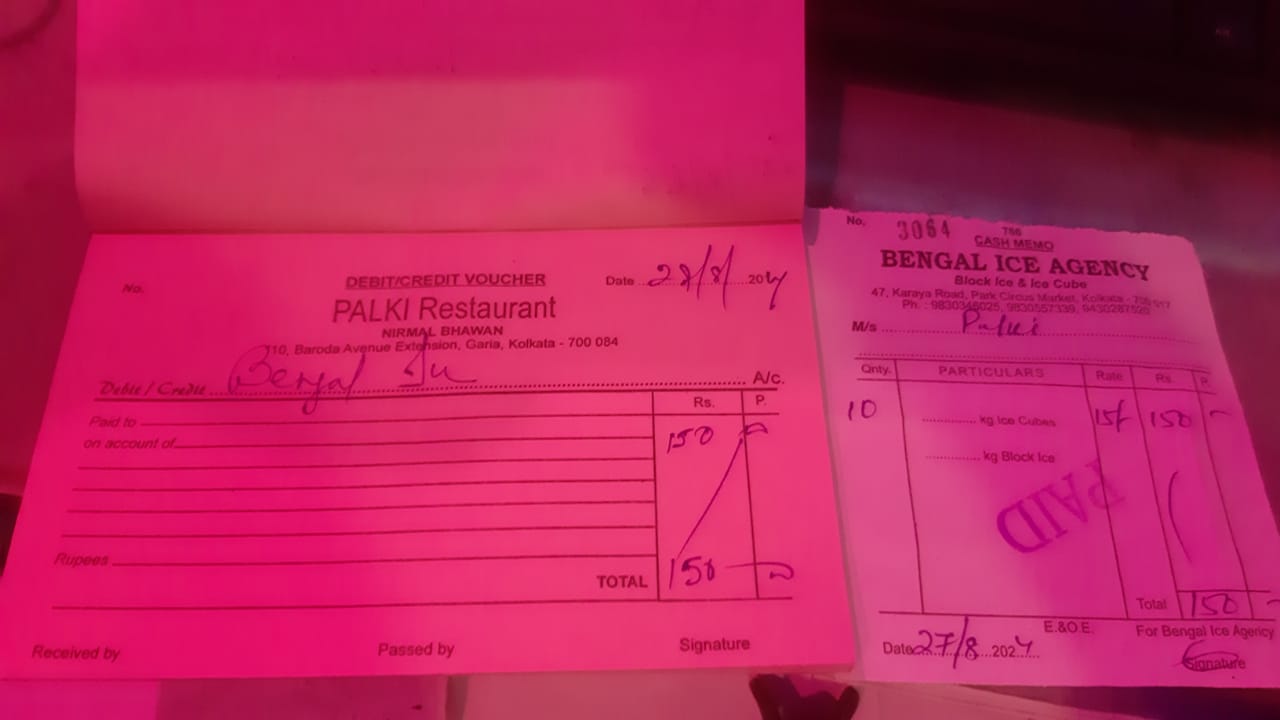 No.
DEBIT/CREDIT VOUCHER
Date 28/8/ 2024
PALKI Restaurant
NIRMAL BHAWAN
110, Baroda Avenue Extension, Garia, Kolkata - 700 084
Debit / Credit Bengal A/c.
Rs. P.
Paid to
on account of 150
Rupees
TOTAL 150
Received by Passed by Signature
No. 3064
786
CASH MEMO
BENGAL ICE AGENCY
Block Ice & Ice Cube
47, Karaya Road, Park Circus Market, Kolkata - 700 017
Ph. : 9830346025, 9830557339, 9430287520
M/s Palki
Qnty. PARTICULARS Rate Rs. P.
10 kg Ice Cubes 15/ 150 -
kg Block Ice
PAID
Total 150 -
E.&O.E. For Bengal Ice Agency
Date 27/8 2024
Signature